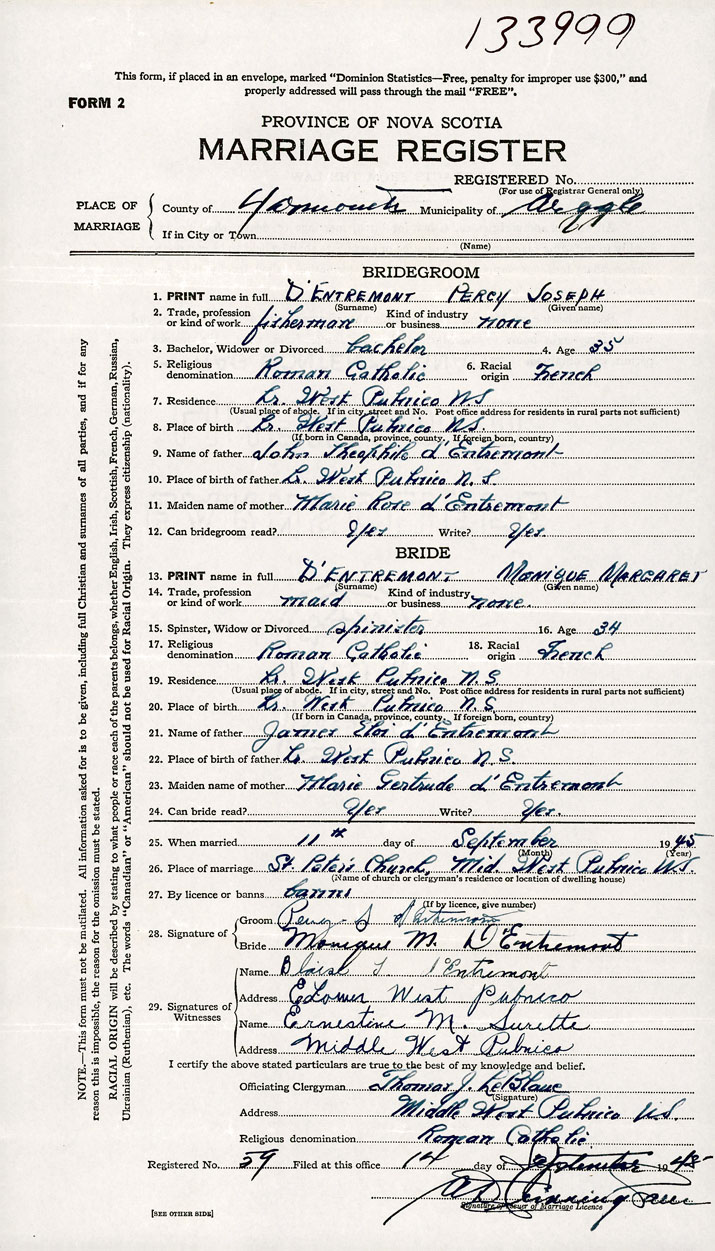 133999
This form, if placed in an envelope, marked "Dominion Statistics—Free, penalty for improper use $300," and
properly addressed will pass through the mail "FREE".
FORM 2
PROVINCE OF NOVA SCOTIA
MARRIAGE REGISTER
REGISTERED No.
(For use of Registrar General only)
PLACE OF MARRIAGE
County of Yarmouth Municipality of Argyle
If in City or Town
(Name)
BRIDEGROOM
1. PRINT name in full D'ENTREMONT PERCY JOSEPH
(Surname) (Given name)
2. Trade, profession or kind of work fisherman Kind of industry or business none
3. Bachelor, Widower or Divorced bachelor 4. Age 35
5. Religious denomination Roman Catholic 6. Racial origin French
7. Residence Lr. West Pubnico N.S
(Usual place of abode. If in city, street and No. Post office address for residents in rural parts not sufficient)
8. Place of birth Lr. West Pubnico N.S.
(If born in Canada, province, county. If foreign born, country)
9. Name of father John Theophile d'Entremont
10. Place of birth of father Lr. West Pubnico N.S.
11. Maiden name of mother Marie Rose d'Entremont
12. Can bridegroom read? Yes Write? Yes.
BRIDE
13. PRINT name in full D'ENTREMONT MONIQUE MARGARET
(Surname) (Given name)
14. Trade, profession or kind of work maid Kind of industry or business none.
15. Spinster, Widow or Divorced spinister 16. Age 34
17. Religious denomination Roman Catholic 18. Racial origin French
19. Residence Lr. West Pubnico N.S
(Usual place of abode. If in city, street and No. Post office address for residents in rural parts not sufficient)
20. Place of birth Lr. West Pubnico N.S.
(If born in Canada, province, county. If foreign born, country)
21. Name of father James Eloi d'Entremont
22. Place of birth of father Lr West Pubnico N.S.
23. Maiden name of mother Marie Gertrude d'Entremont
24. Can bride read? Yes Write? Yes.
25. When married 11th day of September 1945
(Month) (Year)
26. Place of marriage St. Peter's Church, Mid. West Pubnico N.S.
(Name of church or clergyman's residence or location of dwelling house)
27. By licence or banns banns
(If by licence, give number)
28. Signature of
Groom Percy J D'Entremont
Bride Monique M. D'Entremont
29. Signatures of Witnesses
Name Blaise d'Entremont
Address Lower West Pubnico
Name Ernestine M. Surette
Address Middle West Pubnico
I certify the above stated particulars are true to the best of my knowledge and belief.
Officiating Clergyman Thomas J. LeBlanc
(Signature)
Address Middle West Pubnico N.S.
Religious denomination Roman Catholic
Registered No. 59 Filed at this office 14 day of September 1945
Signature of Issuer of Marriage Licence
[SEE OTHER SIDE]
NOTE.—This form must not be mutilated. All information asked for is to be given, including full Christian and surnames of all parties, and if for any
reason this is impossible, the reason for the omission must be stated.
RACIAL ORIGIN will be described by stating to what people or race each of the parents belongs, whether English, Irish, Scottish, French, German, Russian,
Ukrainian (Ruthenian), etc. The words "Canadian" or "American" should not be used for Racial Origin. They express citizenship (nationality).